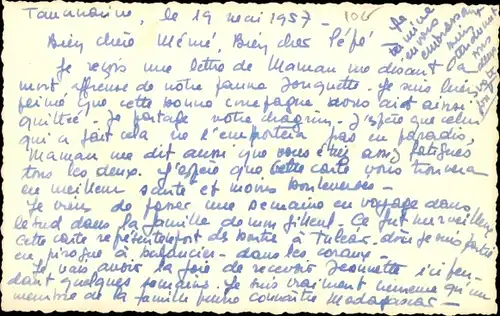 Tananarive, le 19 mai 1957 -
106
Bien chère Mémé, Bien cher Pépé
Je reçois une lettre de Maman me disant la
mort affreuse de votre pauvre Jonquette. Je suis bien
peiné que cette bonne compagne vous ait ainsi
quitté. Je partage votre chagrin. J'espère que celui
qui a fait cela ne l'emportera pas en paradis,
Maman me dit aussi que vous étiez assez fatigués
tous les deux. J'espère que cette carte vous trouvera
en meilleur santé et moins bouleversés -
Je viens de passer une semaine en voyage dans
le sud dans la famille de mon filleul. Ce fut merveilleux
Cette carte représente port des boutres à Tuléar, d'où je suis partie
en pirogue à balancier - dans les coraux -
Je vais avoir la joie de recevoir Jeannette ici pen-
dant quelques semaines. Je suis vraiment heureuse qu'un
membre de la famille puisse connaître Madagascar -
Je
termine
en vous
embrassant
bien
tous deux